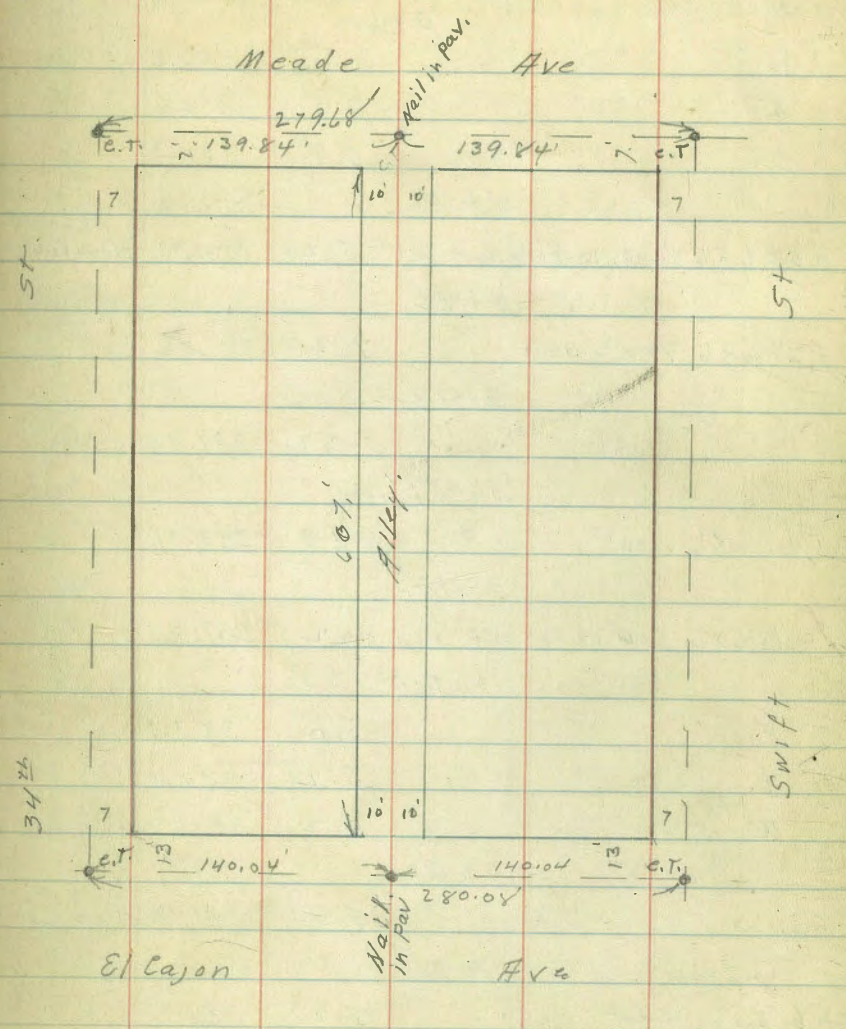 Meade Ave
Nail in pav.
279.68
e.T. 139.84' 139.84' 7 e.T
7 10' 10' 7
St St
607.'
Alley.
34th Swift
7 10' 10' 7
e.T. 13 140.04' 140.04 13' e.T.
280.08'
Nail in Pav
El Cajon Ave